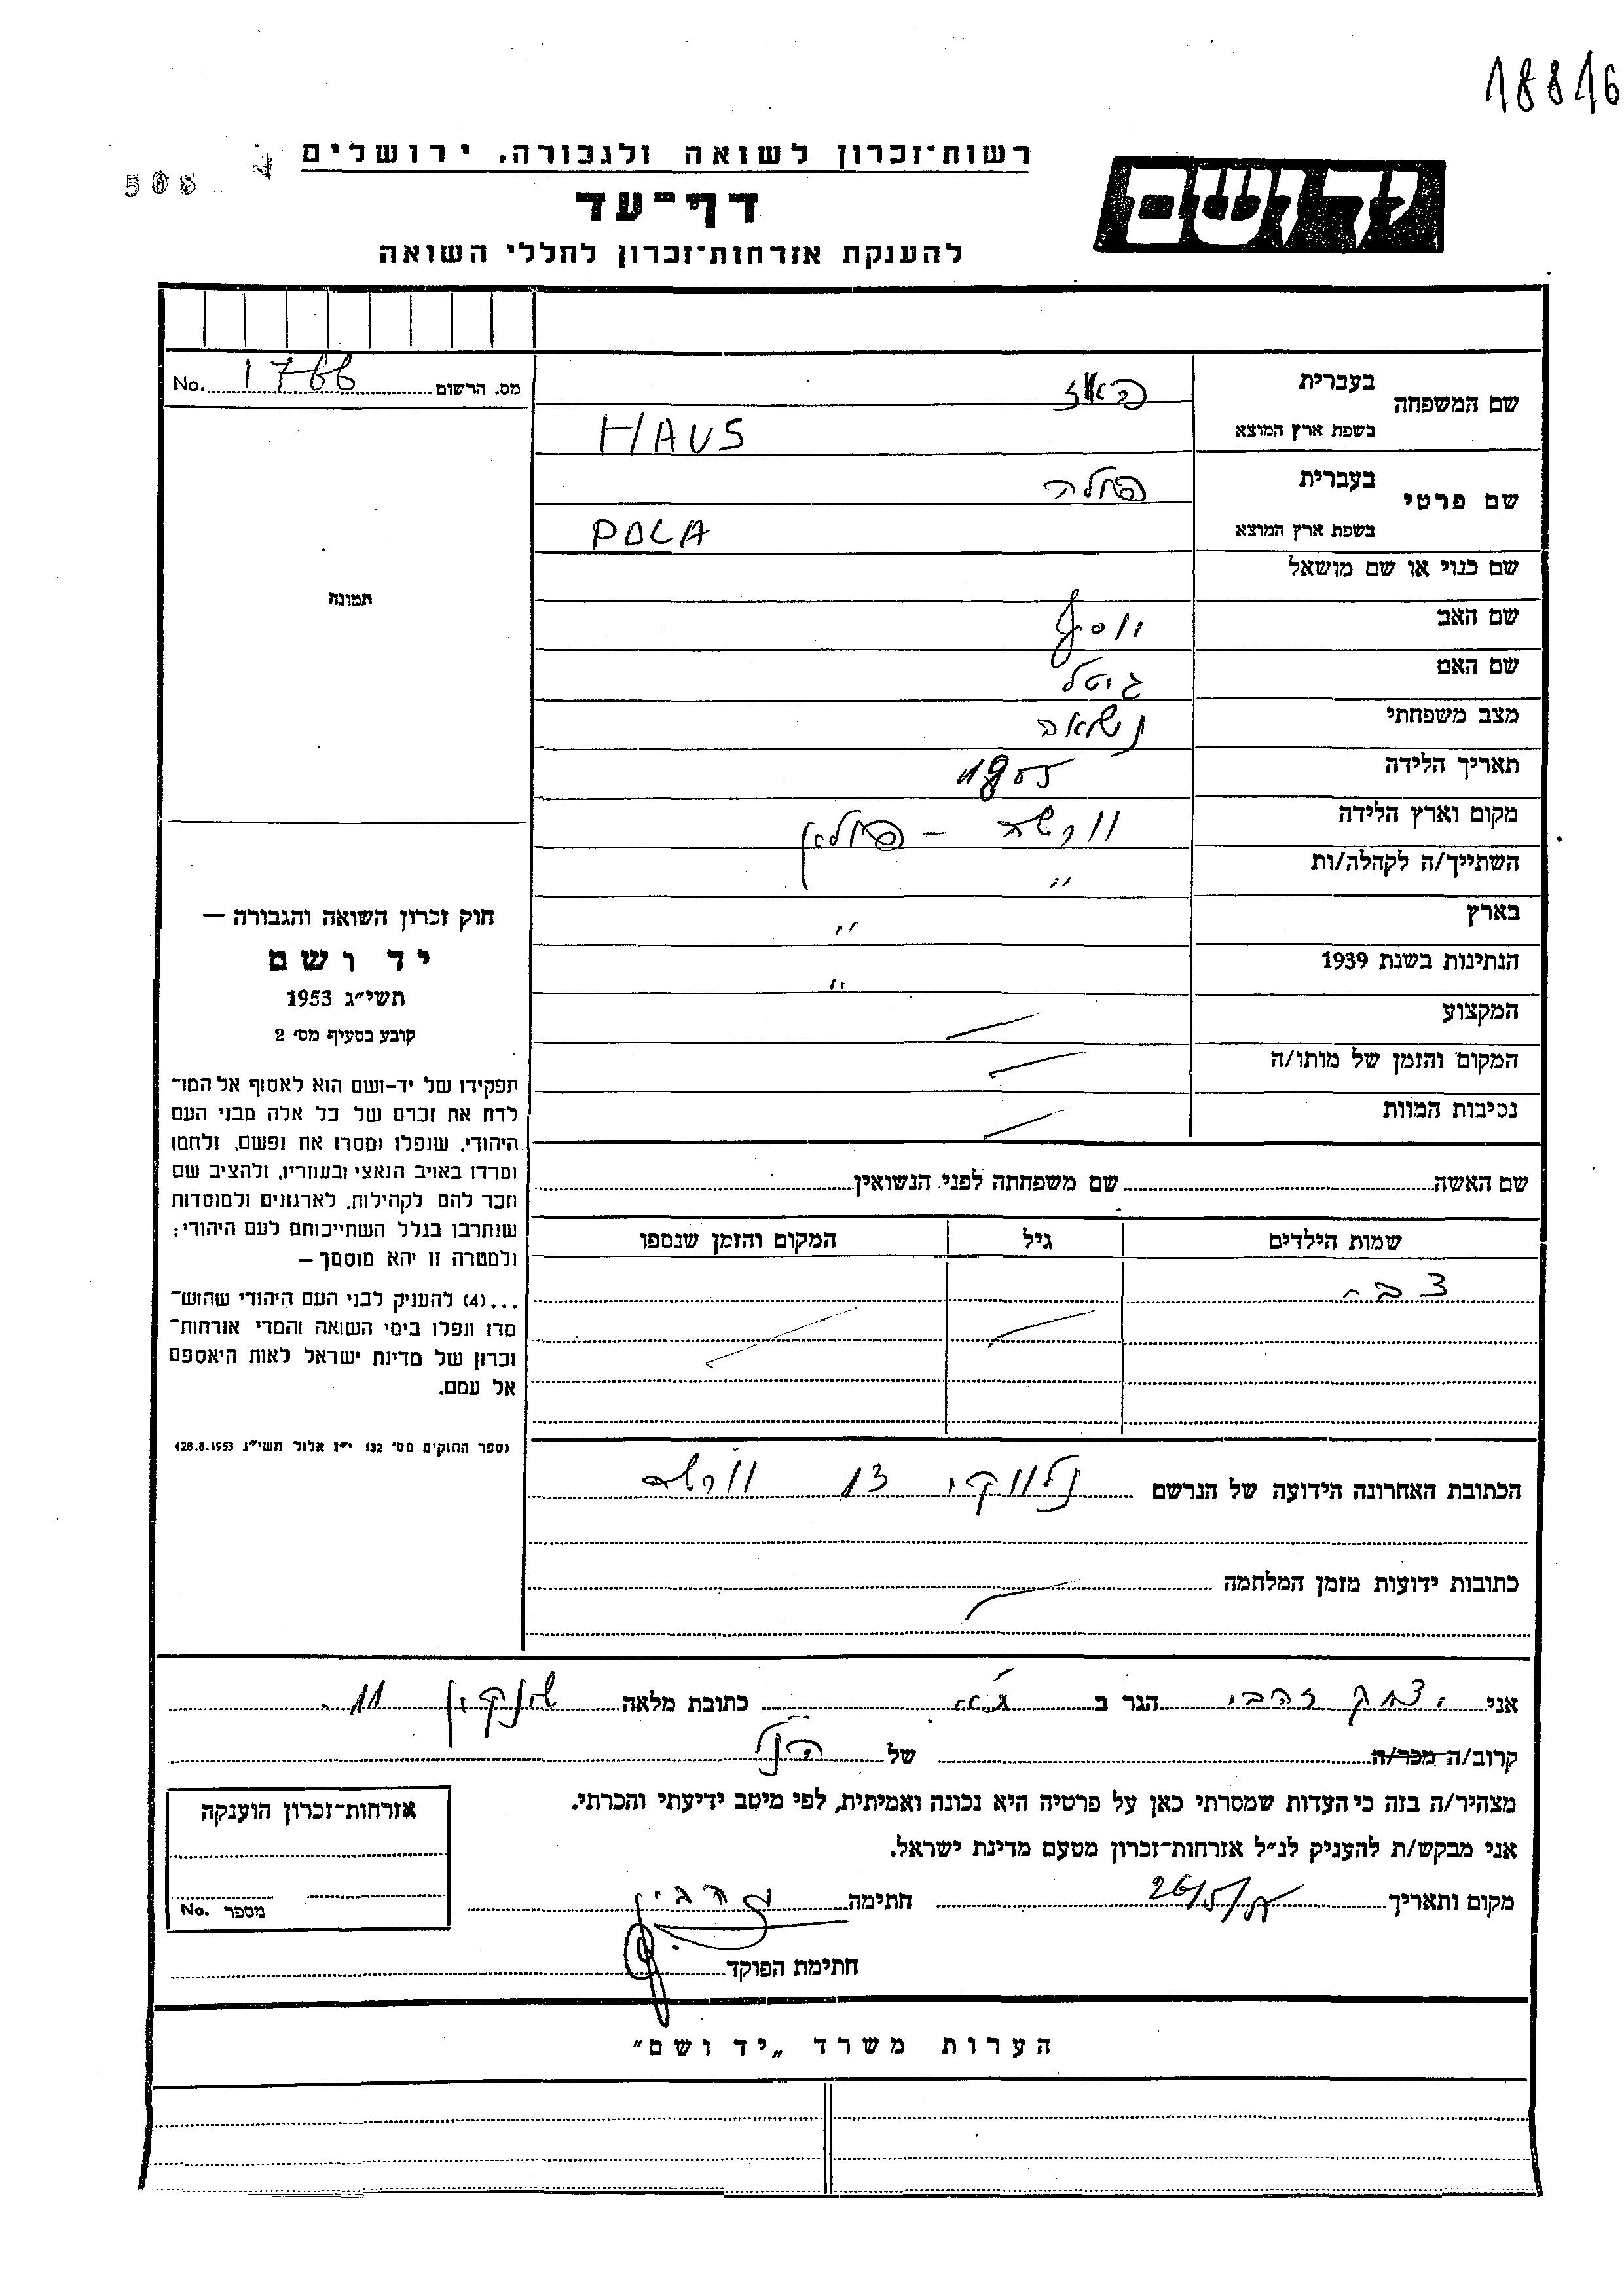 18816
508
רשות־זכרון לשואה ולגבורה, ירושלים
יד ושם
דף־עד
להענקת אזרחות־זכרון לחללי השואה
No. 1766 מס. הרשום
שם המשפחה
בעברית האוז
בשפת ארץ המוצא HAUS
שם פרטי
בעברית פולה
בשפת ארץ המוצא POLA
שם כנוי או שם מושאל
שם האב יוסף
שם האם גיטל
מצב משפחתי נשואה
תאריך הלידה 1905
מקום וארץ הלידה וורשה - פולאן
השתייך/ה לקהלה/ות "
בארץ "
הנתינות בשנת 1939 "
המקצוע
המקום והזמן של מותו/ה
נסיבות המוות
תמונה
חוק זכרון השואה והגבורה —
יד ושם
תשי״ג 1953
קובע בסעיף מס׳ 2
תפקידו של יד-ושם הוא לאסוף אל המו־
לדת את זכרם של כל אלה מבני העם
היהודי, שנפלו ומסרו את נפשם, נלחמו
ומרדו באויב הנאצי ובעוזריו, ולהציב שם
וזכר להם לקהילות, לארגונים ולמוסדות
שנחרבו בגלל השתייכותם לעם היהודי;
ולמטרה זו יהא מוסמך —
...(4) להעניק לבני העם היהודי שהוש־
מדו ונפלו בימי השואה והמרי אזרחות־
זכרון של מדינת ישראל לאות היאספם
אל עמם.
(ספר החוקים מס׳ 132 י״ז אלול תשי״ג 28.8.1953)
שם האשה שם משפחתה לפני הנשואין
שמות הילדים גיל המקום והזמן שנספו
צבי
הכתובת האחרונה הידועה של הנרשם נלווקי 13 וורשה
כתובות ידועות מזמן המלחמה
אני יצחק זהבי הגר ב ת״א כתובת מלאה שנקין 11.
קרוב/ה מכר/ה של הנ״ל
מצהיר/ה בזה כי העדות שמסרתי כאן על פרטיה היא נכונה ואמיתית, לפי מיטב ידיעתי והכרתי.
אני מבקש/ת להעניק לנ״ל אזרחות־זכרון מטעם מדינת ישראל.
מקום ותאריך חתימה
חתימת הפוקד
אזרחות־זכרון הוענקה
No. מספר
הערות משרד „יד ושם״